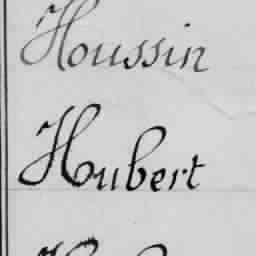 Houssin
Hubert